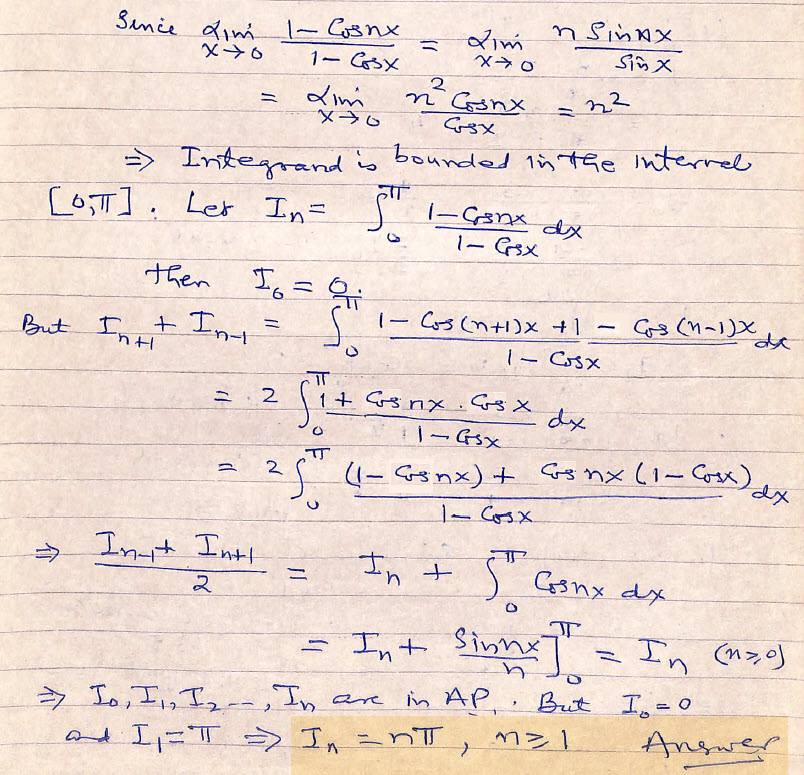 Since Lim x→0 (1 - Cosnx)/(1 - Cosx) = Lim x→0 (n Sin nx)/(Sin x)
= Lim x→0 (n² Cosnx)/(Cosx) = n²
⇒ Integrand is bounded in the interval
[0,π]. Let Iₙ = ∫₀^π (1 - Cosnx)/(1 - Cosx) dx
then I₀ = 0.
But Iₙ₊₁ + Iₙ₋₁ = ∫₀^π (1 - Cos(n+1)x + 1 - Cos(n-1)x)/(1 - Cosx) dx
= 2 ∫₀^π (1 + Cosnx . Cosx)/(1 - Cosx) dx
= 2 ∫₀^π ((1 - Cosnx) + Cosnx (1 - Cosx))/(1 - Cosx) dx
⇒ (Iₙ₋₁ + Iₙ₊₁)/2 = Iₙ + ∫₀^π Cosnx dx
= Iₙ + (Sin nx)/n ]₀^π = Iₙ (n≥0)
⇒ I₀, I₁, I₂ --, Iₙ are in AP. But I₀ = 0
and I₁ = π ⇒ Iₙ = nπ, n≥1 Answer